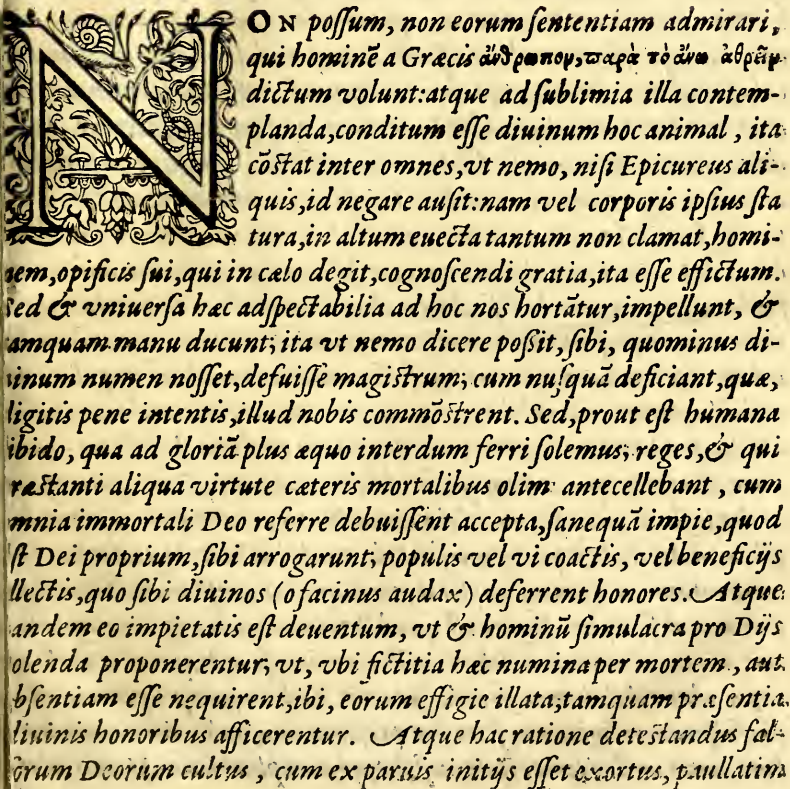 NON poſſum, non eorum ſententiam admirari,
qui hominē a Græcis ἄνθρωπον, παρὰ τὸ ἄνω ἀθρεῖν
dictum volunt: atque ad ſublimia illa contem-
planda, conditum eſſe diuinum hoc animal, ita
cōſtat inter omnes, vt nemo, niſi Epicureus ali-
quis, id negare auſit: nam vel corporis ipſius ſta
tura, in altum euecta tantum non clamat, homi-
nem, opificis ſui, qui in cælo degit, cognoſcendi gratia, ita eſſe effictum.
Sed & vniuerſa hæc adſpectabilia ad hoc nos hortātur, impellunt, &
amquam manu ducunt; ita vt nemo dicere poßit, ſibi, quominus di-
inum numen noſſet, defuiſſe magiſtrum; cum nuſquā deficiant, quæ,
igitis pene intentis, illud nobis commōſtrent. Sed, prout eſt humana
ibido, qua ad gloriā plus æquo interdum ferri ſolemus; reges, & qui
ræſtanti aliqua virtute cæteris mortalibus olim antecellebant, cum
mnia immortali Deo referre debuiſſent accepta, ſanequā impie, quod
ſt Dei proprium, ſibi arrogarunt; populis vel vi coactis, vel beneficijs
llectis, quo ſibi diuinos (o facinus audax) deferrent honores. Atque
andem eo impietatis eſt deuentum, vt & hominū ſimulacra pro Dijs
olenda proponerentur; vt, vbi fictitia hæc numina per mortem, aut
bſentiam eſſe nequirent, ibi, eorum effigie illata, tamquam præſentia,
iuinis honoribus afficerentur. Atque hac ratione deteſtandus fal-
orum Deorum cultus, cum ex paruis initijs eſſet exortus, paullatim